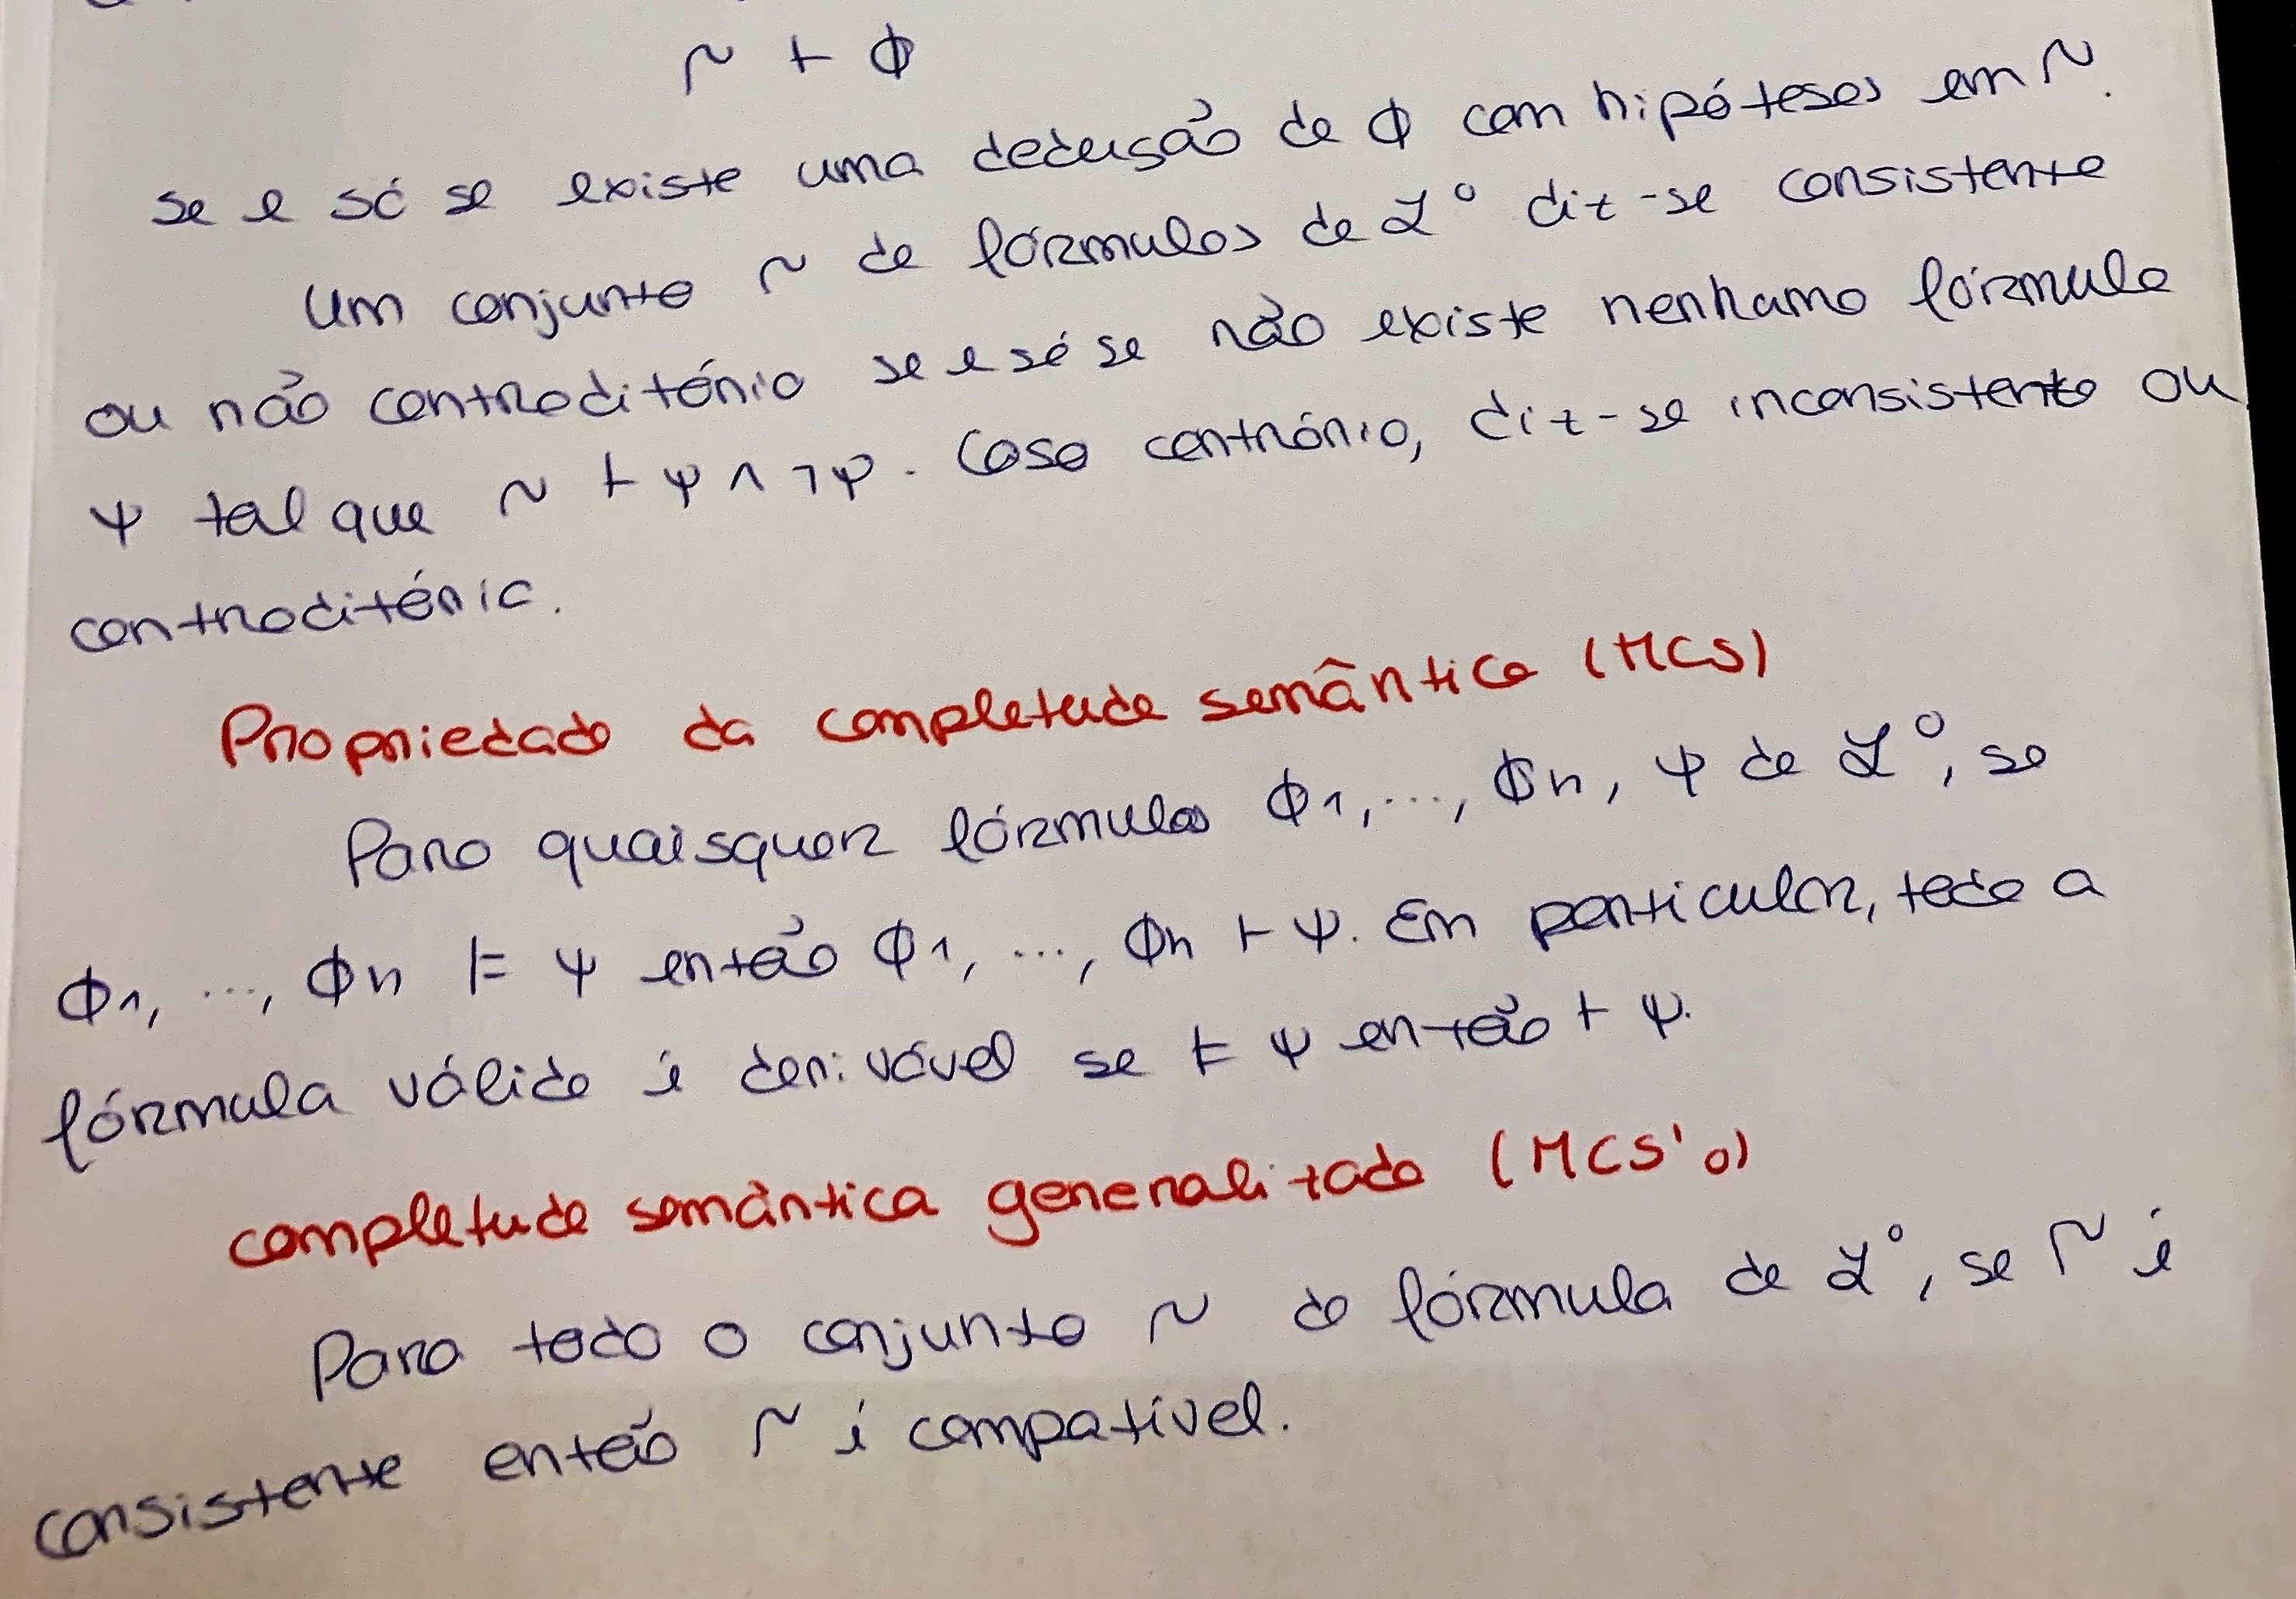 Γ ⊢ Φ
se e só se existe uma dedução de Φ com hipóteses em Γ.
Um conjunto Γ de fórmulas de L° diz-se consistente
ou não contraditório se e só se não existe nenhuma fórmula
Ψ tal que Γ ⊢ Ψ ∧ ¬Ψ. Caso contrário, diz-se inconsistente ou
contraditório.
Propriedade da completude semântica (MCS)
Para quaisquer fórmulas Φ1, ..., Φn, Ψ de L°, se
Φ1, ..., Φn ⊨ Ψ então Φ1, ..., Φn ⊢ Ψ. Em particular, toda a
fórmula válida é derivável se ⊨ Ψ então ⊢ Ψ.
completude semântica generalizada (MCS'0)
Para todo o conjunto Γ de fórmula de L°, se Γ é
consistente então Γ é compatível.